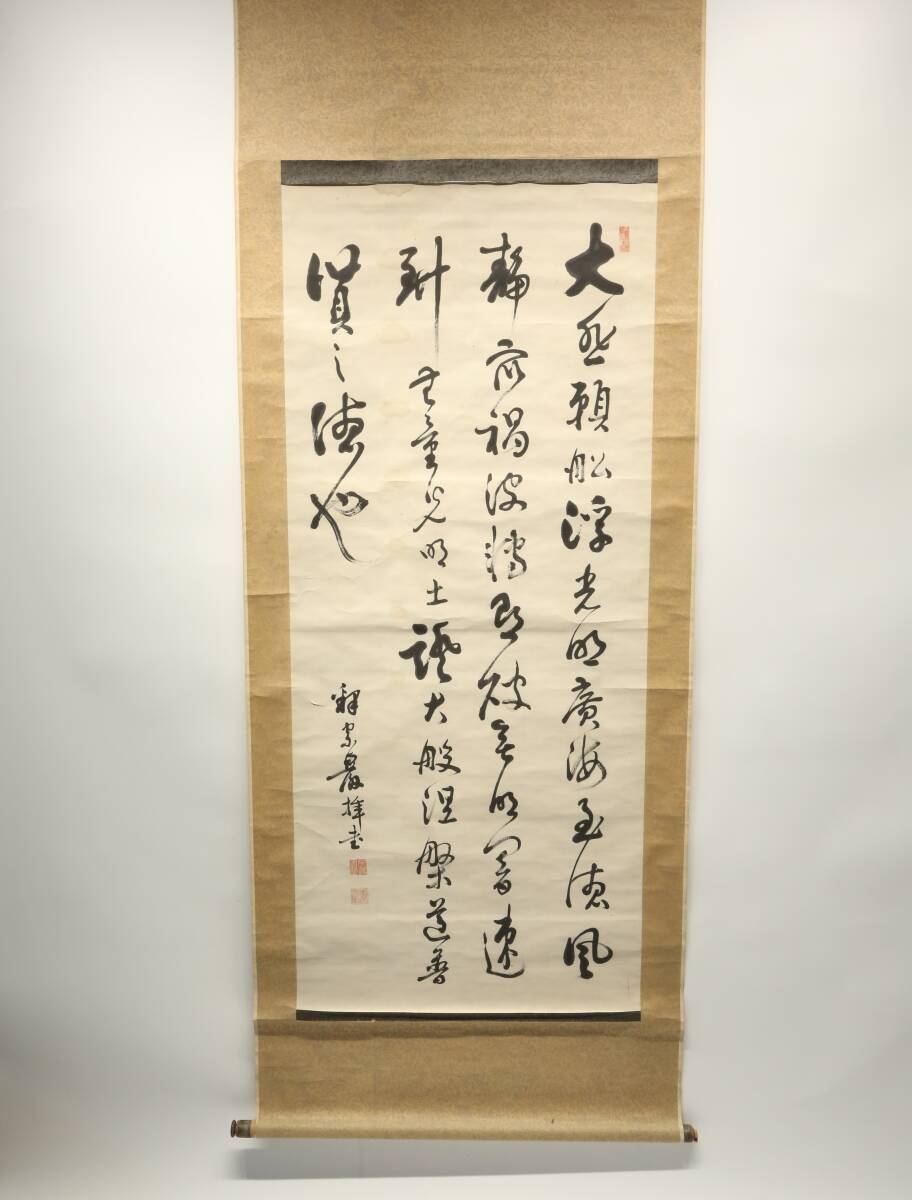 大悲願船浮光明廣海至徳風
靜衆禍波轉即破無明闇速
到無量光明土證大般涅槃遵普
賢之徳也
釋拝書